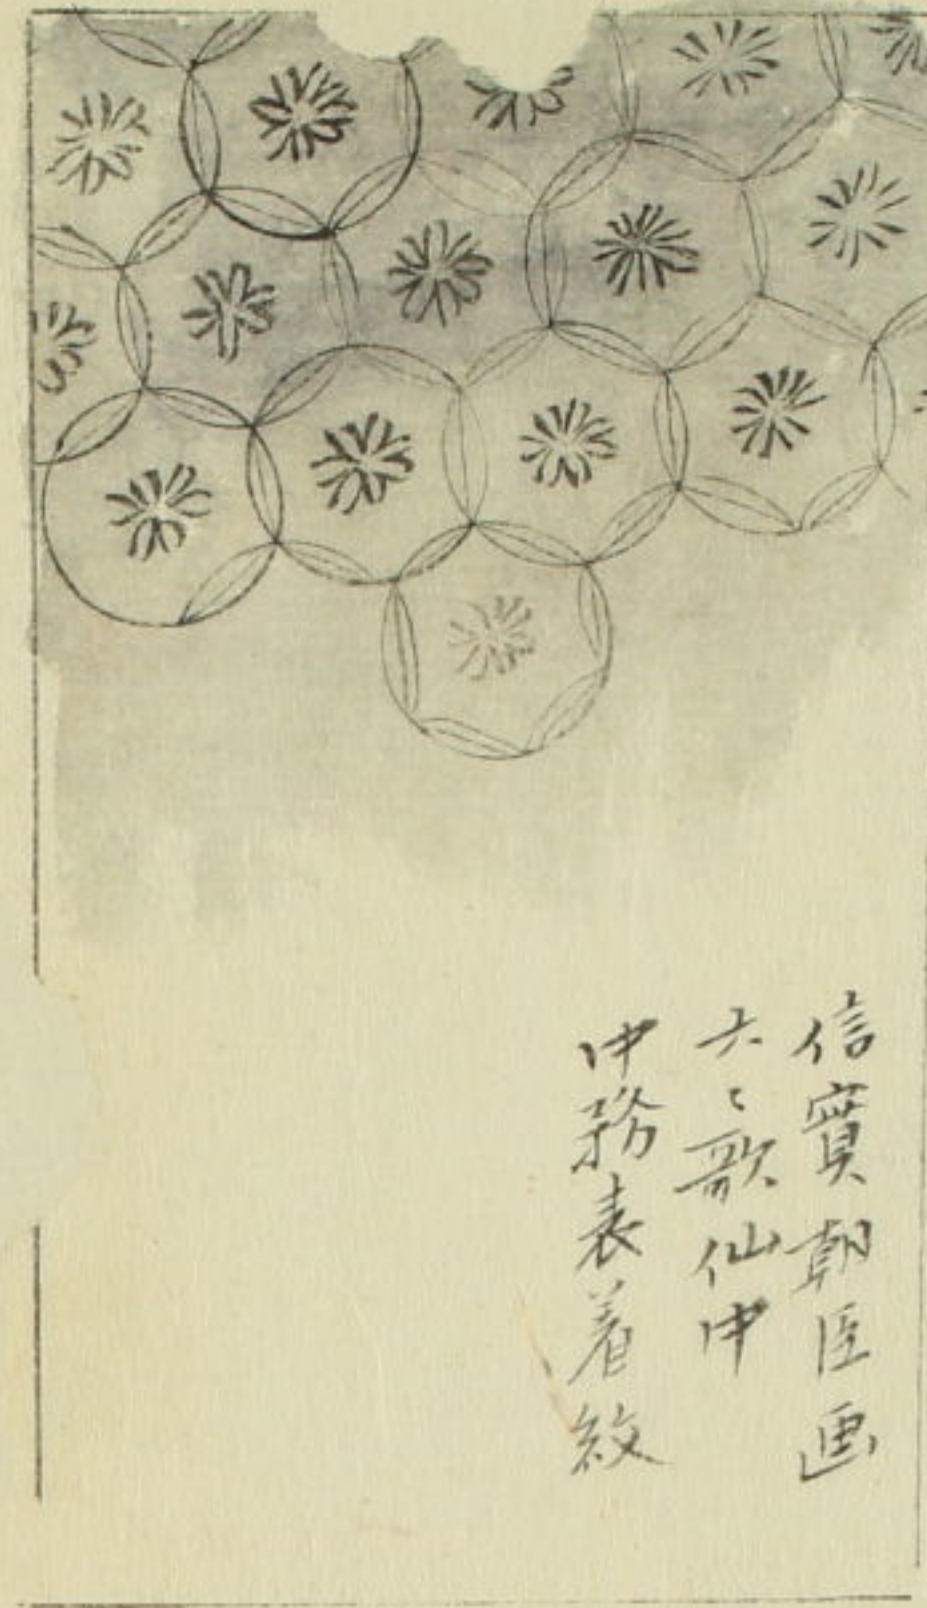 信實朝臣画
六〻歌仙中
中務表着紋